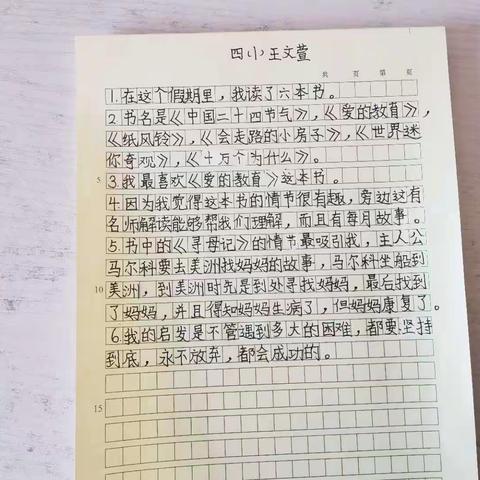 四(小)王文萱
共 页 第 页
1.在这个假期里，我读了六本书。
2.书名是《中国二十四节气》，《爱的教育》，
《纸风铃》，《会走路的小房子》，《世界迷
你奇观》，《十万个为什么》。
5 3.我最喜欢《爱的教育》这本书。
4.因为我觉得这本书的情节很有趣，旁边这有
名师解读能够帮我们理解，而且有每月故事。
5.书中的《寻母记》的情节最吸引我，主人公
马尔科要去美洲找妈妈的故事，马尔科坐船到
10 美洲，到美洲时先是到处寻找妈妈，最后找到
了妈妈，并且得知妈妈生病了，但妈妈康复了。
6.我的启发是不管遇到多大的困难，都要坚持
到底，永不放弃，都会成功的。
15